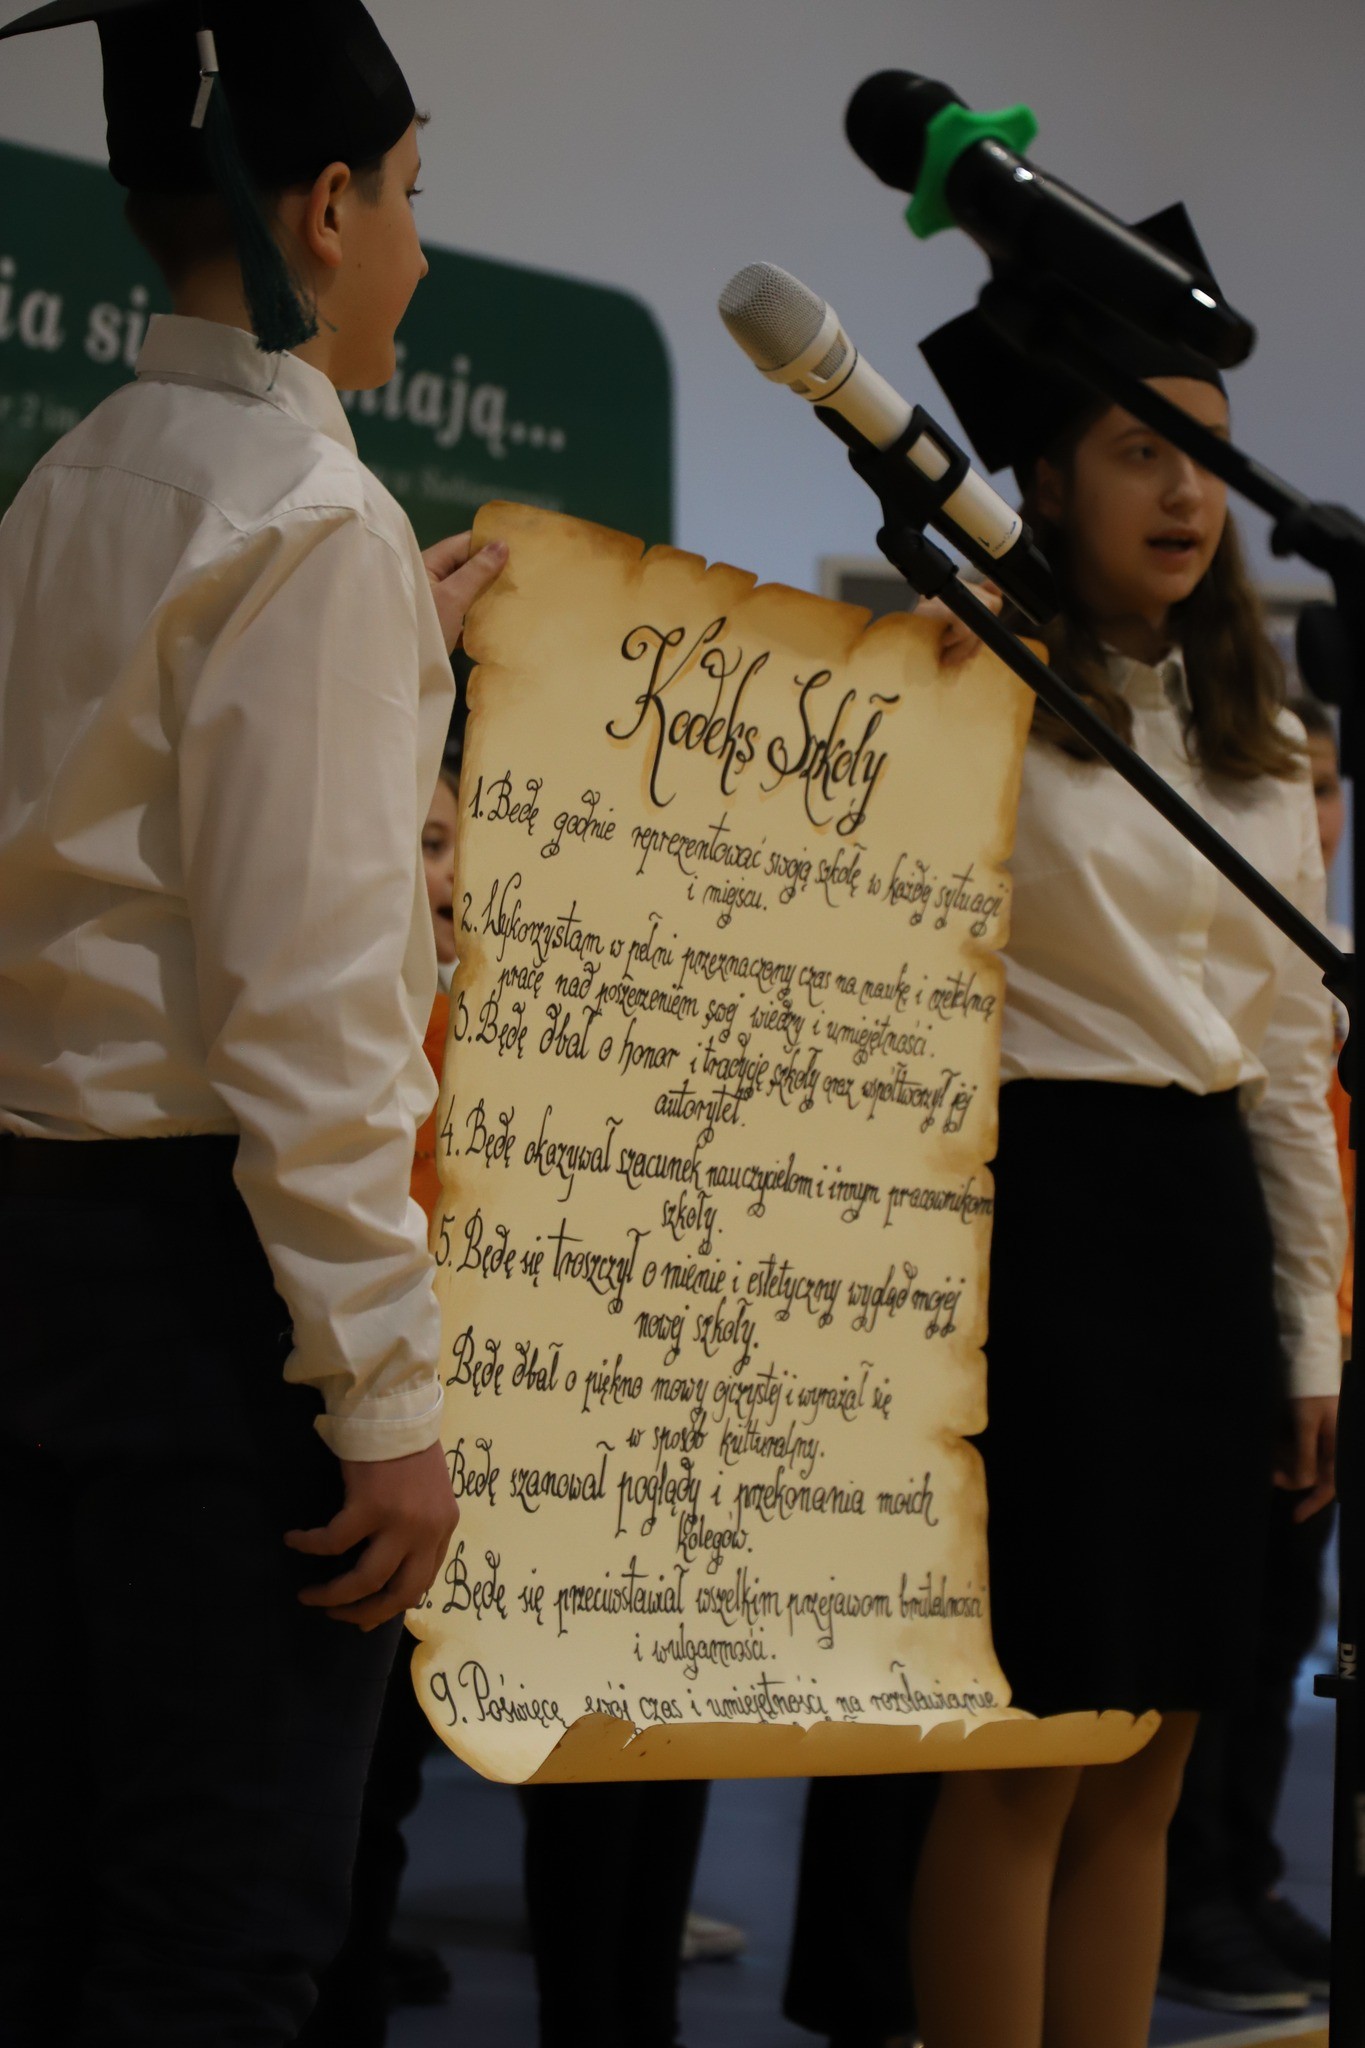 ia si
niają...
r 2 im
Kodeks Szkoły
1. Będę godnie reprezentować swoją szkołę w każdej sytuacji
i miejscu.
2. Wykorzystam w pełni przeznaczony czas na naukę i rzetelną
pracę nad poszerzeniem swej wiedzy i umiejętności.
3. Będę dbał o honor i tradycję szkoły oraz współtworzył jej
autorytet.
4. Będę okazywał szacunek nauczycielom i innym pracownikom
szkoły.
5. Będę się troszczył o mienie i estetyczny wygląd mojej
nowej szkoły.
Będę dbał o piękno mowy ojczystej i wyrażał się
w sposób kulturalny.
Będę szanował poglądy i przekonania moich
kolegów.
8. Będę się przeciwstawiał wszelkim przejawom brutalności
i wulgarności.
9. Poświęcę swój czas i umiejętności na rozsławianie
DN